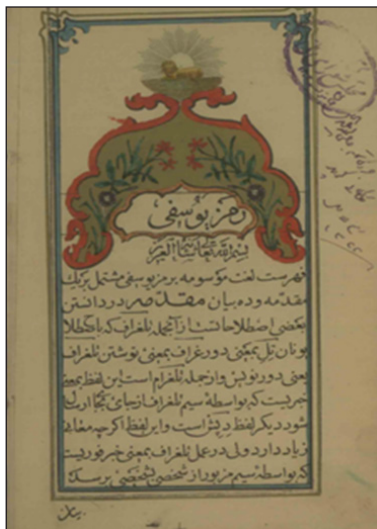 رمز یوسفی
بسم الله تعالی شانه العزیز
فهرست لغت موسومه برمز یوسفی مشتمل بر یک
مقدمه و ده بیان مقدمه در دانستن
بعضی اصطلاحاتست از آنجمله تلغراف که باصطلاح
یونان تل بمعنی دور غراف بمعنی نوشتن تلغراف
یعنی دور نویس و از جمله تلغرام است این لفظ بمعنی
خبریست که بواسطه سیم تلغراف از جای بجا ارسال
شود دیگر لفظ است و این لفظ اگر چه معانی
زیاد دارد ولی در عمل تلغراف بمعنی خبر فوریست
که بواسطه سیم مزبور از شخصی بشخصی برسد